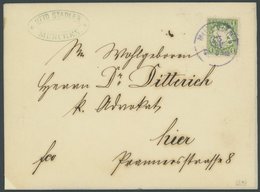 OTTO STADLER
MÜNCHEN
Sr. Wohlgeboren
Herrn Dr. Ditterich
k. Advokat
hier
fco
Prannersstrasse 8